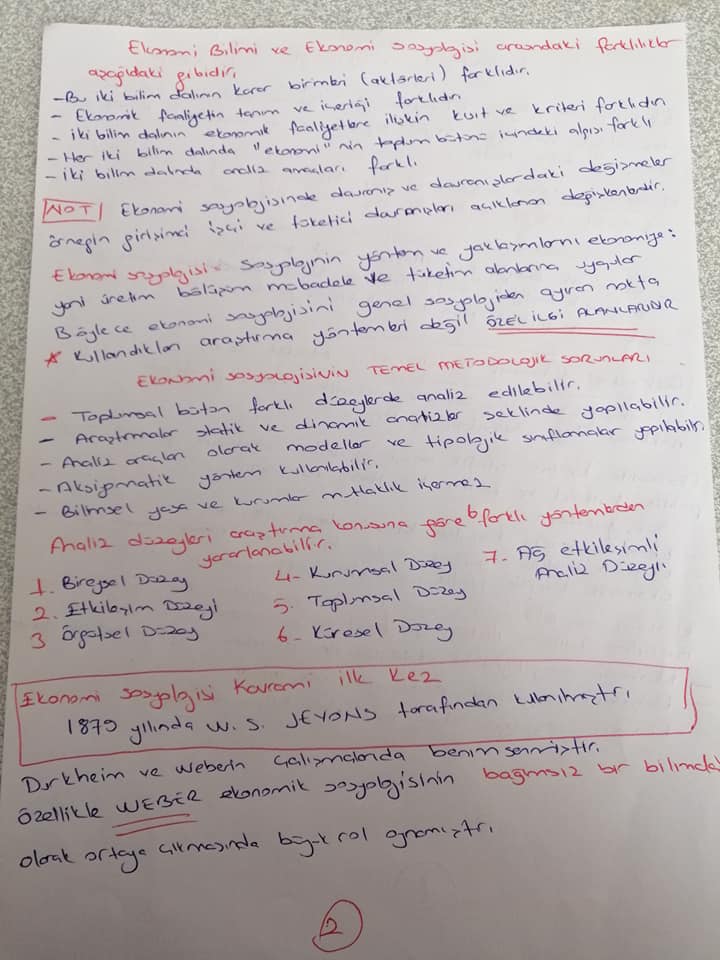 Ekonomi Bilimi ve Ekonomi sosyolojisi arasındaki farklılıklar
aşağıdaki gibidir.
- Bu iki bilim dalının karar birimleri (aktörleri) farklıdır.
- Ekonomik faaliyetin tanım ve içeriği farklıdır.
- iki bilim dalının ekonomik faaliyetlere ilişkin kısıt ve kriteri farklıdır
- Her iki bilim dalında "ekonomi"nin toplum bütünü içindeki algısı farklı
- iki bilim dalında analiz amaçları farklı.
NOT Ekonomi sosyolojisinde davranış ve davranışlardaki değişmeler
örneğin girişimci işçi ve tüketici davranışları açıklanan değişkenlerdir.
Ekonomi sosyolojisi = Sosyolojinin yöntem ve yaklaşımlarını ekonomiye:
yani üretim bölüşüm mübadele ve tüketim alanlarına uygular
Böylece ekonomi sosyolojisini genel sosyolojiden ayıran nokta
* Kullandıkları araştırma yöntemleri değil ÖZEL İLGİ ALANLARIDIR
EKONOMİ SOSYOLOJİSİNİN TEMEL METODOLOJİK SORUNLARI
- Toplumsal bütün farklı düzeylerde analiz edilebilir.
- Araştırmalar statik ve dinamik analizler şeklinde yapılabilir.
- Analiz araçları olarak modeller ve tipolojik sınıflamalar yapılabilir.
- Aksiyomatik yöntem kullanılabilir.
- Bilimsel yasa ve kuramlar mutlaklık içermez
Analiz düzeyleri araştırma konusuna göre 6 farklı yöntemden
yararlanabilir.
1. Bireysel Düzey 4- Kurumsal Düzey 7. Ağ etkileşimli
Analiz Düzeyi.
2. Etkileşim Düzeyi 5. Toplumsal Düzey
3 Örgütsel Düzey 6- Küresel Düzey
Ekonomi sosyolojisi Kavramı ilk kez
1879 yılında W. S. JEVONS tarafından kullanılmıştır.
Durkheim ve Weberin çalışmalarında benimsenmiştir.
özellikle WEBER ekonomik sosyolojisinin bağımsız bir bilimdalı
olarak ortaya çıkmasında büyük rol oynamıştır.
2